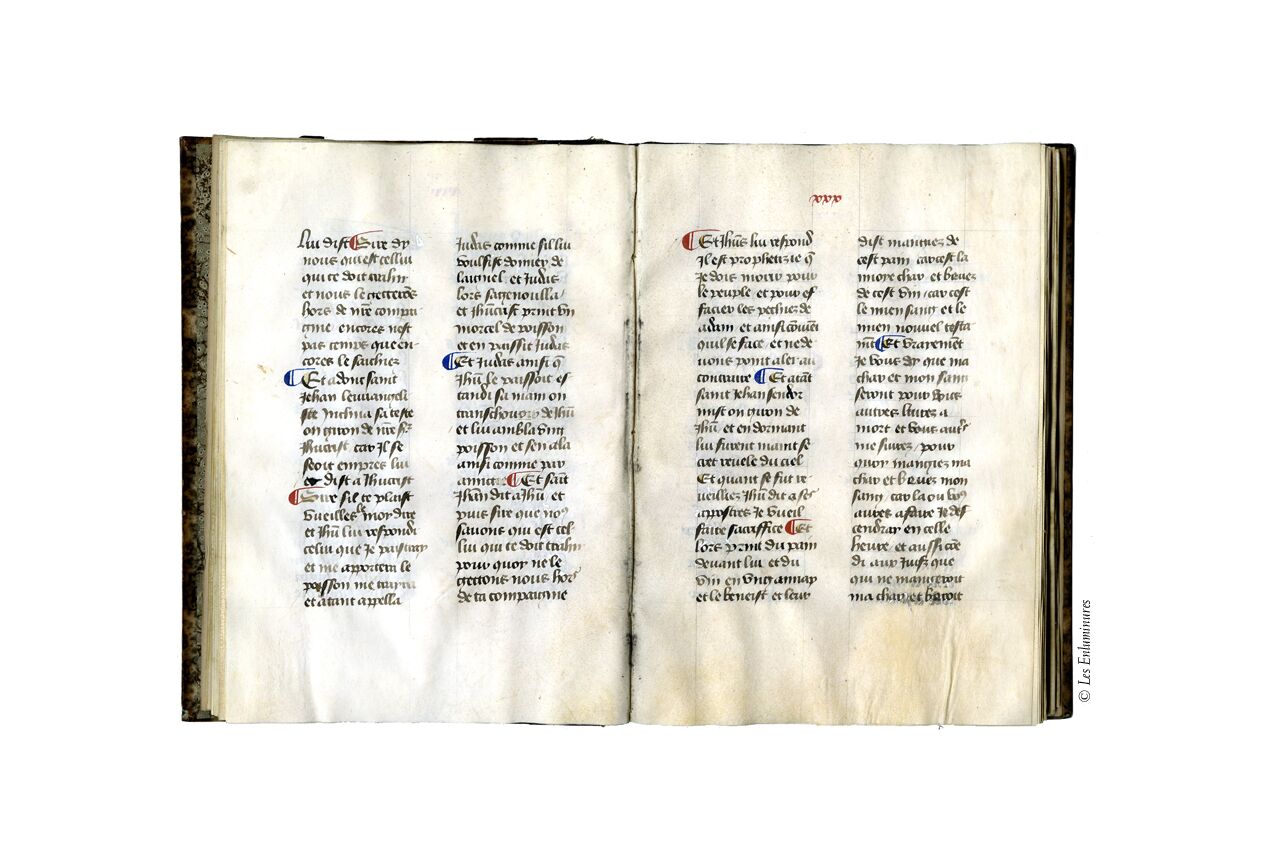 lui dist ¶ Sire dy
nous qui est cellui
qui te doit trahir
et nous le gecterons
hors de nr̄e compai
gnie encores nest
pas temps que en-
cores le sachiez
¶ Et adonc saint
Jehan leuuangeli
ste Inclina sa teste
ou giron de nr̄e sr̄
Jhucrist car Il se
seoit empres lui
et dist a Jhucrist
¶ Sire sil te plaist
vueilles le moy dire
et Jhū lui respondi
celui que Je paistray
et me apportera le
poisson me trayra
et atant appella
Judas comme sil lui
voulsist donner de
laignel et Judas
lors sagenoulla
et Jhucrist print vn
morcel de poisson
et en paissit Judas
¶ Et Judas ainsi q̄
Jhū le paissoit es
tandi sa main ou
transchouoir de Jhū
et lui ambla vng
poisson et sen ala
ainsi comme par
¶ Et saīt
Jhan dit a Jhū et
puis sire que noꝰ
sauons qui est cel-
lui qui te doit trahir
pour quoy ne le
gectons nous hors
de ta compaignie
xxx
¶ Et Jhūs lui respond
Il est prophetizie q̄
Je dois morir pour
le peuple et pour ef
facier les pechiez de
adam et ainsi cōuiēt
quil se face et ne de
uons point aler au
contraire ¶ Et atāt
saint Jehan sendor
mist ou giron de
Jhū et en dormant
lui furent maint se
cret reuele du ciel
Et quant se fut re
ueilliez Jhū dit a ses
appostres Je vueil
faire sacriffice ¶ Et
lors print du pain
deuant lui et du
vin en vng annap
et le beneist et leur
dist mangiez de
cest pain car cest la
moye char et beuez
de cest vin car cest
le mien sang et le
mien nouuel testa
mēt ¶ Et vrayemēt
Je vous dy que ma
char et mon sang
seront pour vous
autres liurez a
mort et vous autrs
me suirez pour
quoy mangiez ma
char et beuez mon
sang car la ou voꝰ
aurez affaire Je des
cendray en celle
heure et aussi cōe
di aux Juifz que
qui ne mangeroit
ma char et beuroit
© Les Enluminures